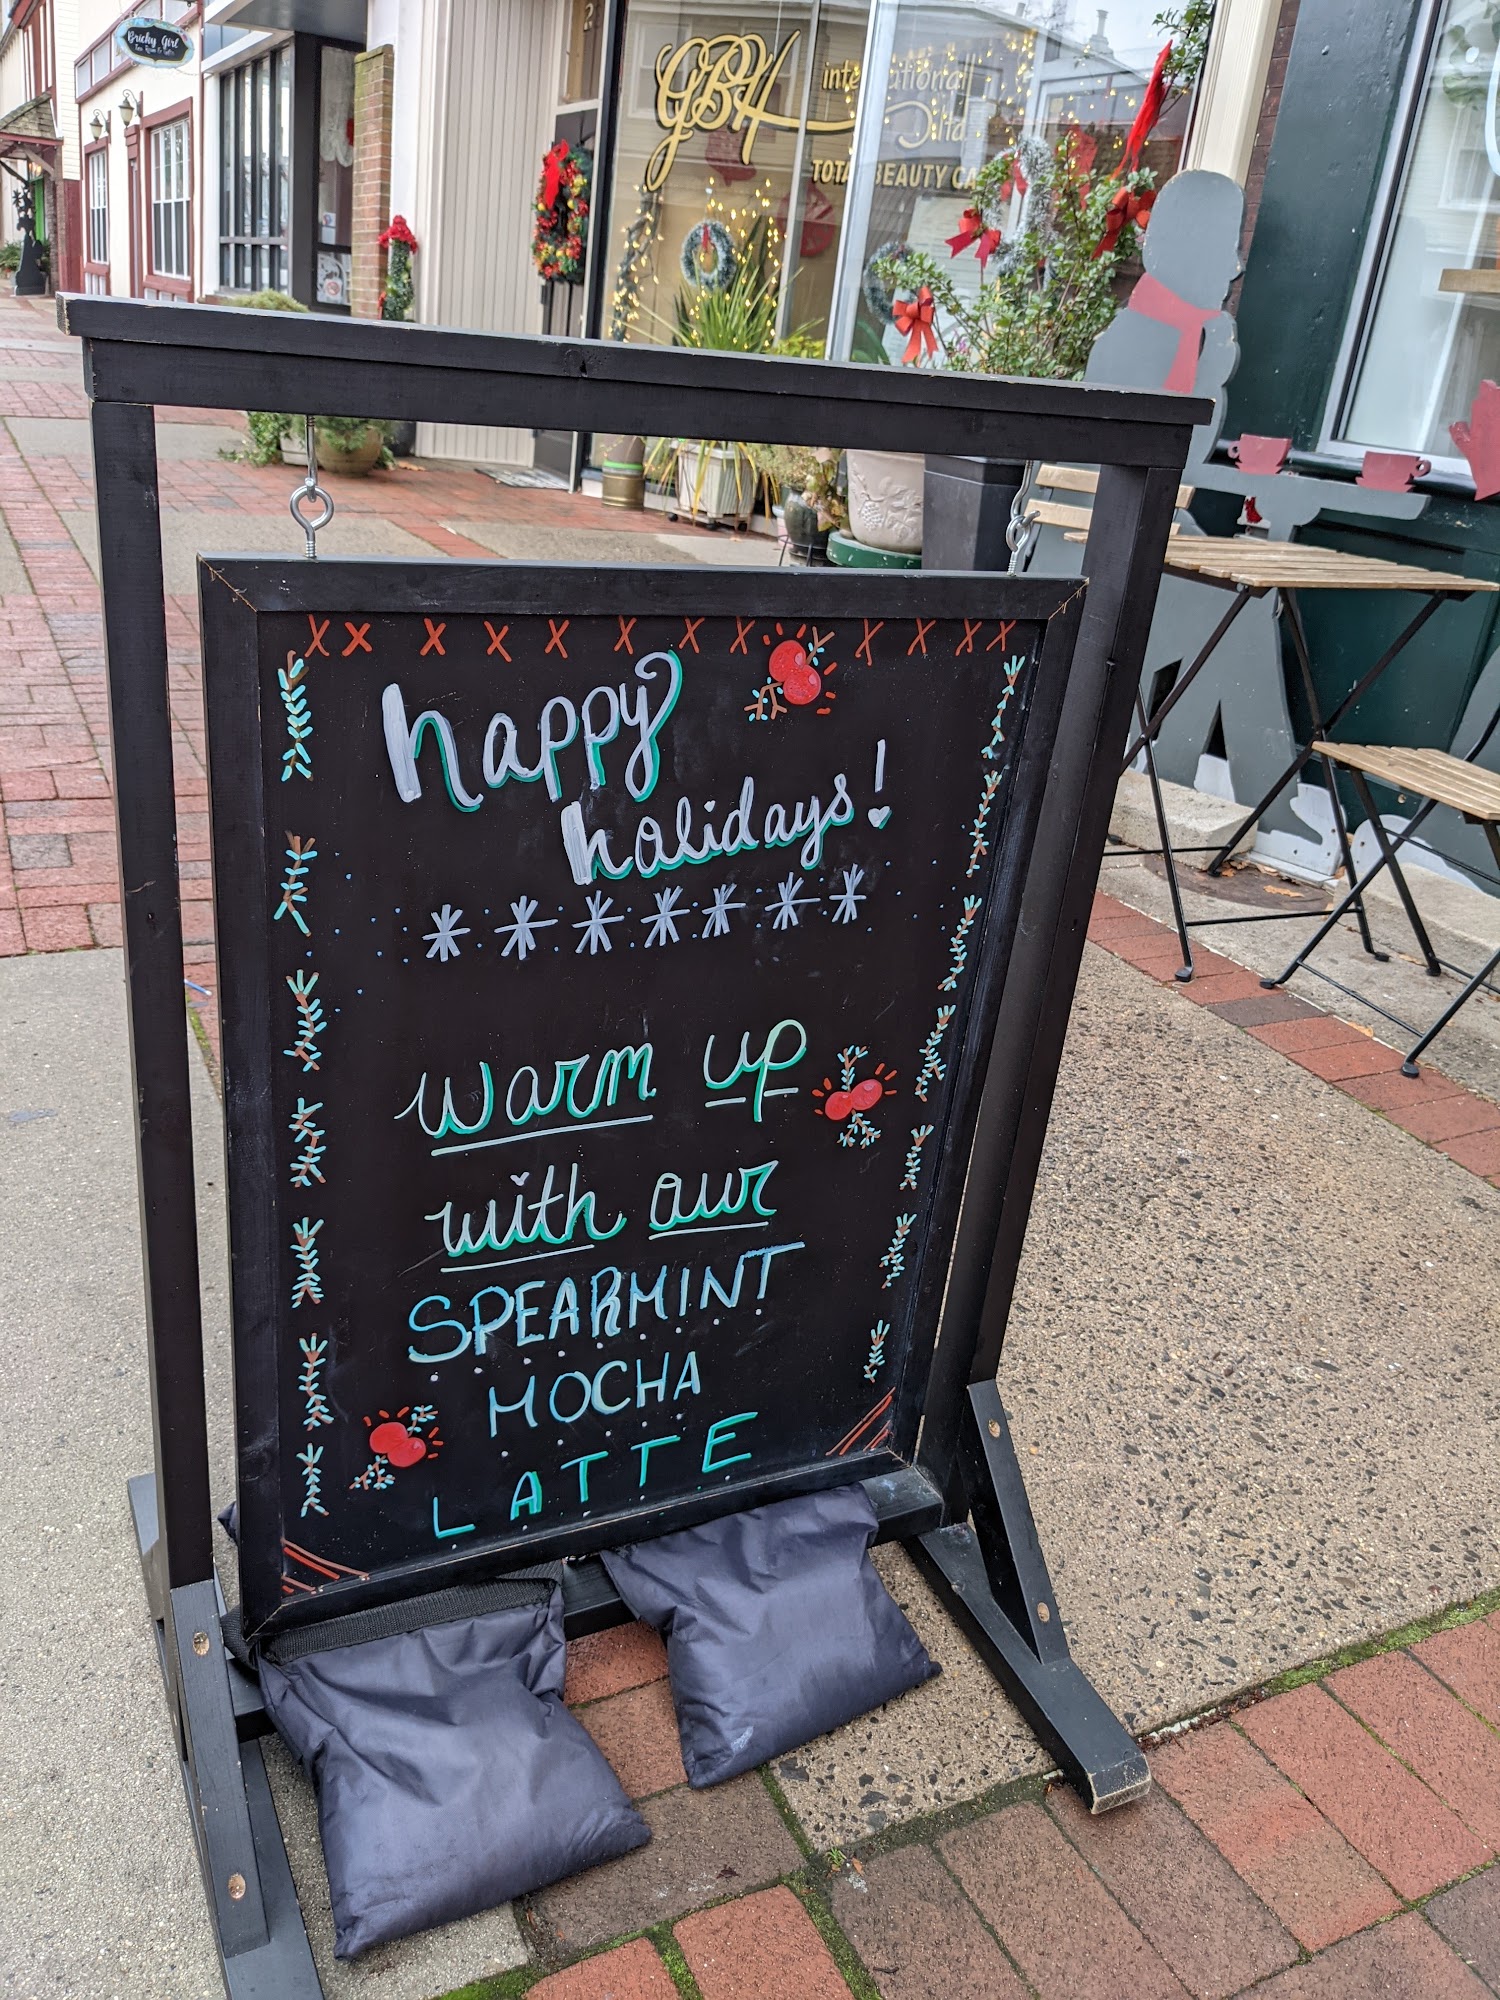 Bricky Girl
GBH international Ltd
TOTAL BEAUTY CA
happy
holidays!
warm up
with our
SPEARMINT
MOCHA
LATTE